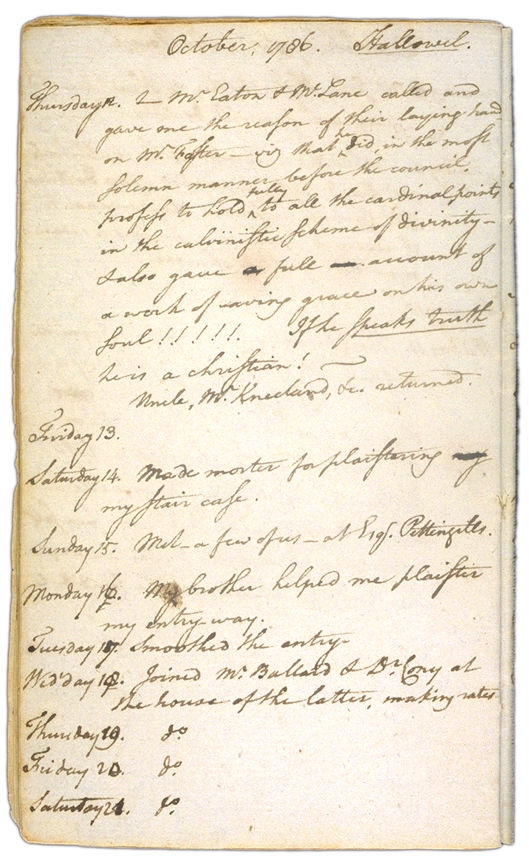 October, 1786. Hallowel.
Thursday 12. Mr Eaton & Mr Lane called and
gave me the reason of their laying hand
on Mr Foster — viz that he did, in the most
solemn manner, before the council.
profess to hold fully to all the cardinal points
in the calvinistic scheme of divinity —
& also gave full account of
a work of saving grace on his own
soul!!!!!! If he speaks truth
he is a christian!
Uncle, Mr Kneeland, &c. returned.
Friday 13.
Saturday 14. Made morter for plaistering
my stair case.
Sunday 15. Met — a few of us — at Esqr. Pettingills.
Monday 16. My brother helped me plaister
my entry-way.
Tuesday 17. Smoothed the entry-
Wed'day 18. Joined Mr Ballard & Dr Cony at
the house of the latter, making rates
Thursday 19. do
Friday 20. do
Saturday 21. do